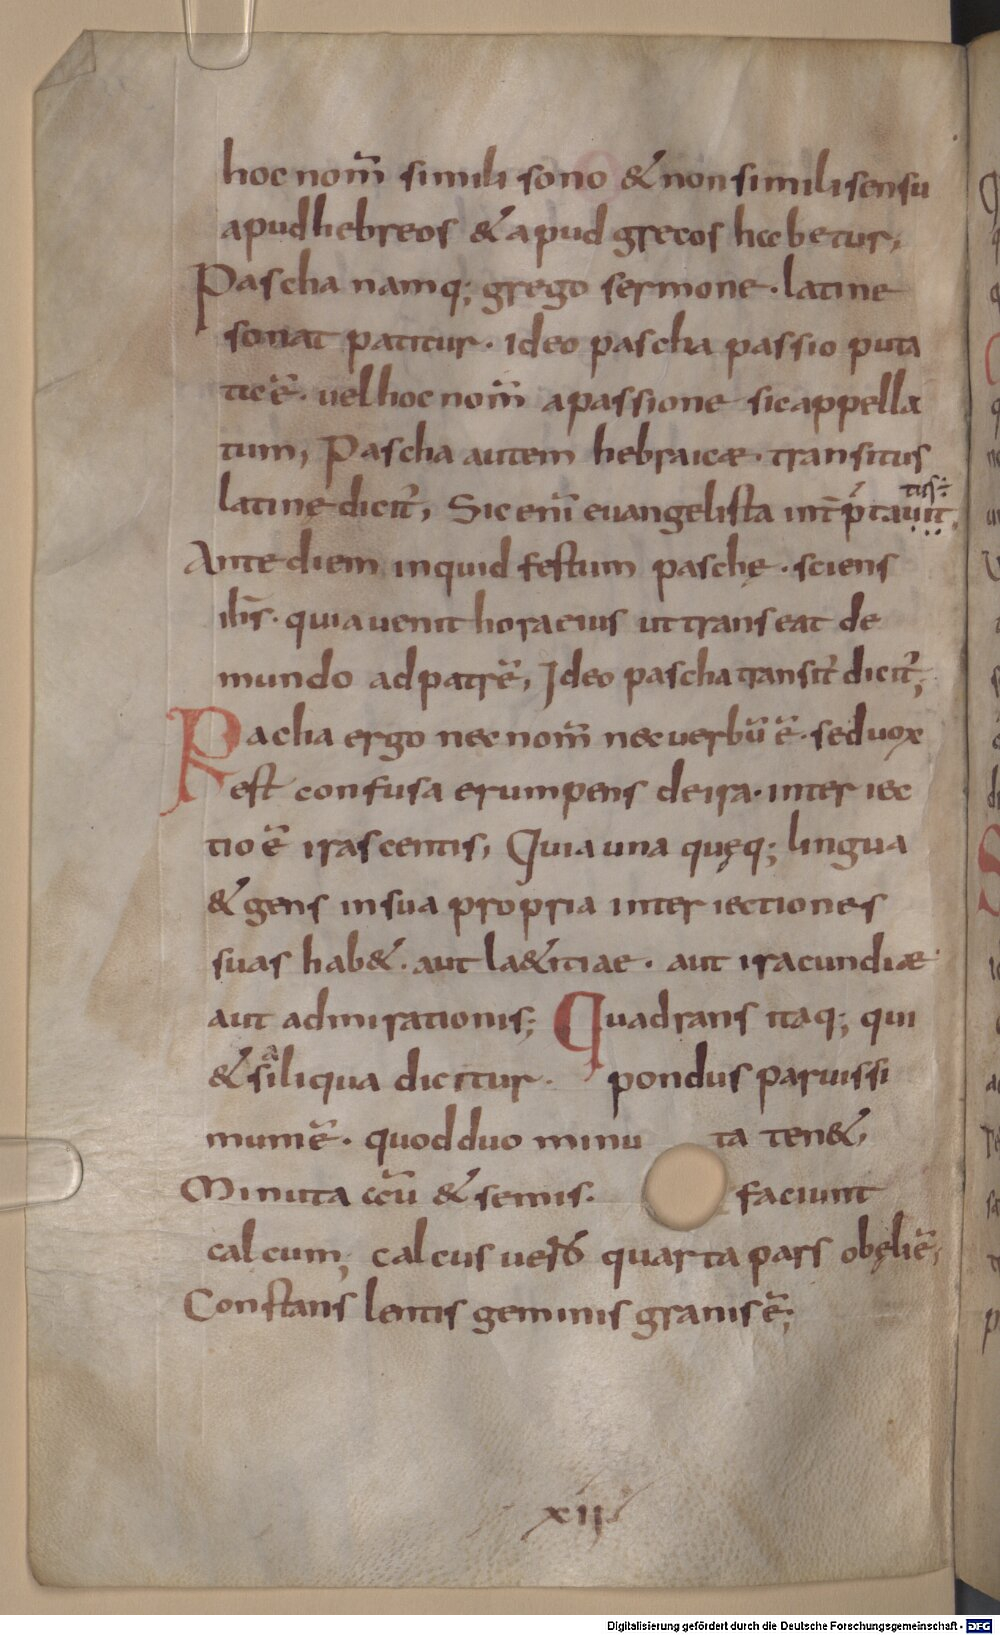 hoc nom̄ simili sono & non simili sensu
apud hebreos & apud grecos habetur,
Pascha namq; grego sermone · latine
sonat patitur · Ideo pascha passio puta
tic ē · uel hoc nom̄ a passione sic appella
tum, Pascha autem hebraicæ · transitus
latine dicit̄, Sic enī euangelista int̄p̄tauit,
tus÷
Ante diem inquid festum paschę · sciens
ih̄s · quia uenit hora eius ut transeat de
mundo ad patrē, Ideo pascha transit̄ dicit̄;
Racha ergo nec nom̄ nec uerbū ē · sed uox
est confusa erumpens de ira · inter iec
tio ē irascentis, Quia una quęq; lingua
& gens in sua propria inter iectiones
suas hab& · aut la&itiae · aut iracundiæ
aut admirationis; Quadrans itaq; qui
a
& siliqua dicitur · pondus paruissi
mum ē · quod duo minu ta ten&,
Minuta cū & semis · faciunt
calcum; calcus uero quarta pars obęli ē,
Constans lentis geminis granis ē;
xii
Digitalisierung gefördert durch die Deutsche Forschungsgemeinschaft - DFG